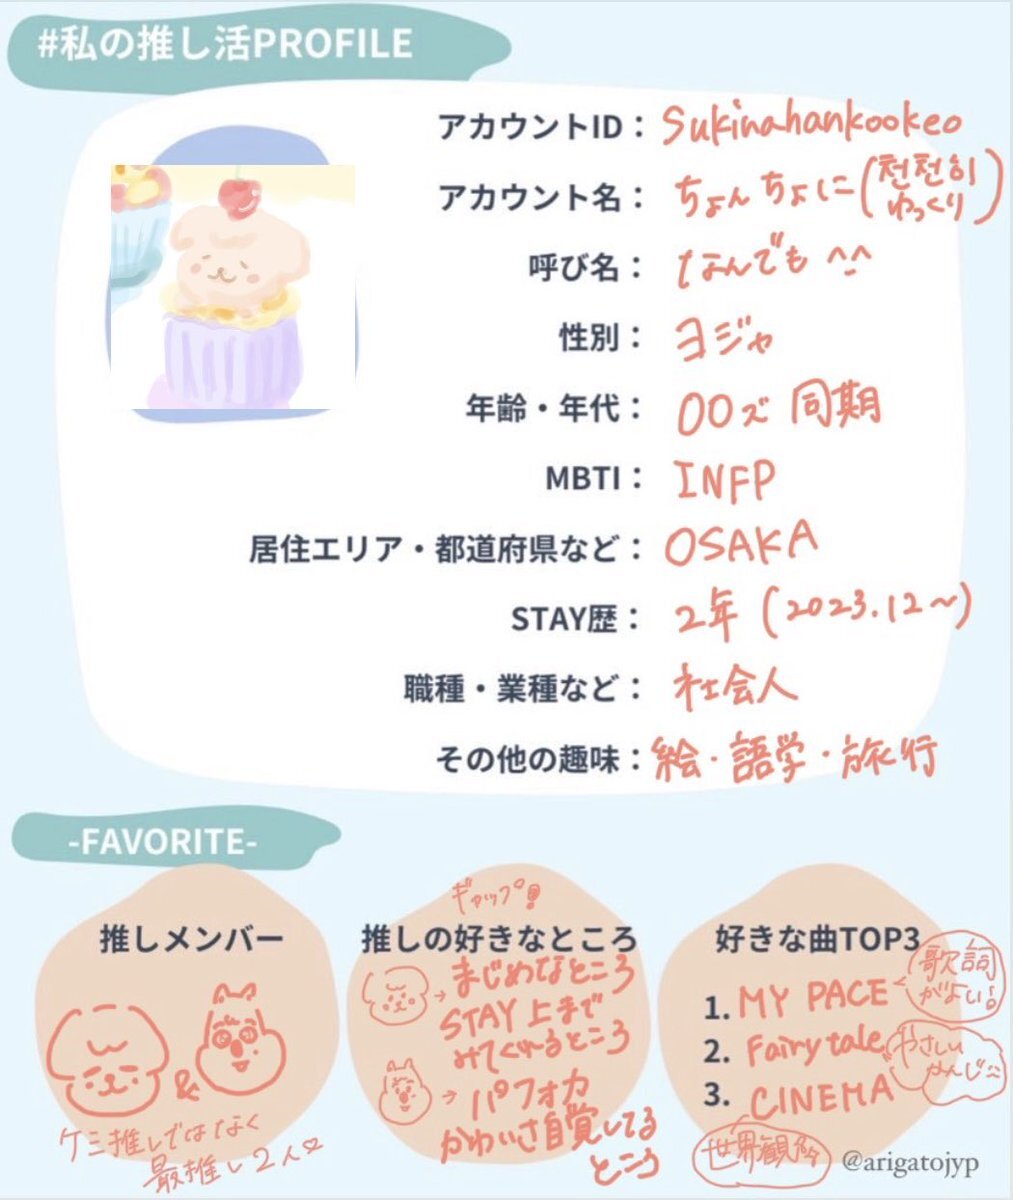 #私の推し活PROFILE
アカウントID： Sukinahankookeo
アカウント名： ちょんちょに(천천히 ゆっくり)
呼び名： なんでも ^-^
性別： ヨジャ
年齢・年代： 00ズ 同期
MBTI： INFP
居住エリア・都道府県など： OSAKA
STAY歴： 2年 (2023.12〜)
職種・業種など： 社会人
その他の趣味： 絵・語学・旅行
-FAVORITE-
推しメンバー
&
ケミ推しではなく
最推し2人♡
ギャップ!
推しの好きなところ
→ まじめなところ
STAY上まで
みてくれるところ
→ パフォ力
かわいさ自覚してる
ところ
好きな曲TOP3
1. MY PACE
歌詞
がよい
2. Fairytale
やさしい
かんじ
3. CINEMA
世界観
@arigatojyp